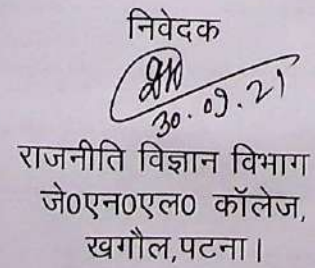 निवेदक
30.09.21
राजनीति विज्ञान विभाग
जे0एन0एल0 कॉलेज,
खगौल,पटना।